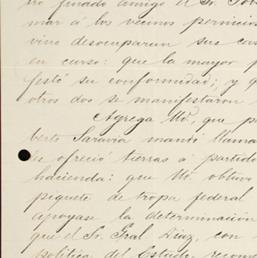 finado amigo el Sr.
mar á los vecinos pernicio
vino desocuparan sus cas
en curso: que la mayor p
festó su conformidad; y q
otros dos se manifestaron
Agrega Ud, que p
berto Saravia mandó llama
le ofreció tierras á partido
hacienda: que Ud obtuvo
piquete de tropa federal
apoyase la determinación
que el Sr. Gral Diaz, con
política del Estado, recom